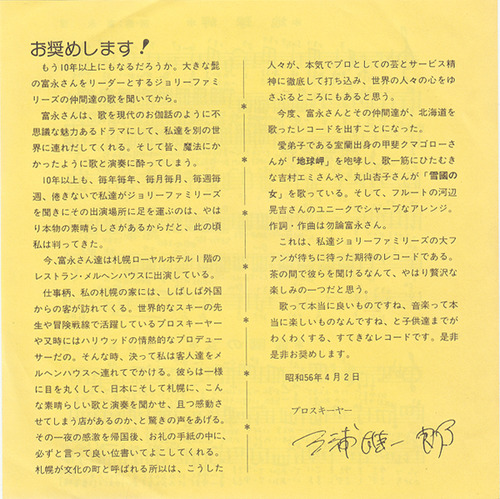 お奨めします!
もう10年以上にもなるだろうか。大きな髭
の富永さんをリーダーとするジョリーファミ
リーズの仲間達の歌を聞いてから。
富永さんは、歌を現代のお伽話のように不
思議な魅力あるドラマにして、私達を別の世
界に連れだしてくれる。そして皆、魔法にか
かったように歌と演奏に酔ってしまう。
10年以上も、毎年毎年、毎月毎月、毎週毎
週、倦きないで私達がジョリーファミリーズ
を聞きにその出演場所に足を運ぶのは、やは
り本物の素晴らしさがあるからだと、此の頃
私は判ってきた。
今、富永さん達は札幌ローヤルホテル1階の
レストラン・メルヘンハウスに出演している。
仕事柄、私の札幌の家には、しばしば外国
からの客が訪れてくる。世界的なスキーの先
生や冒険戦線で活躍しているプロスキーヤー
や又時にはハリウッドの情熱的なプロデュー
サーだの。そんな時、決って私は客人達をメ
ルヘンハウスへ連れてでかける。彼らは一様
に目を丸くして、日本にそして札幌に、こん
な素晴らしい歌と演奏を聞かせ、且つ感動さ
せてしまう店があるのか、と驚きの声をあげる。
その一夜の感激を帰国後、お礼の手紙の中に、
必ずと言って良い位書いてよこしてくれる。
札幌が文化の町と呼ばれる所以は、こうした
人々が、本気でプロとしての芸とサービス精
神に徹底して打ち込み、世界の人々の心をゆ
さぶるところにもあると思う。
今度、富永さんとその仲間が、北海道を
歌ったレコードを出すことになった。
愛弟子である室蘭出身の甲斐クマゴローさ
んが「地球岬」を咆哮し、歌一筋にひたむき
な吉村エミさんや、丸山杏子さんが「雪國の
女」を歌っている。そして、フルートの河辺
晃吉さんのユニークでシャープなアレンジ。
作詞・作曲は勿論富永さん。
これは、私達ジョリーファミリーズの大フ
ァンが待ちに待った期待のレコードである。
茶の間で彼らを聞けるなんて、やはり贅沢な
楽しみの一つだと思う。
歌って本当に良いものですね、音楽って本
当に楽しいものなんですね、と子供達までが
わくわくする、すてきなレコードです。是非
是非お奨めします。
昭和56年4月2日
プロスキーヤー
三浦雄一郎